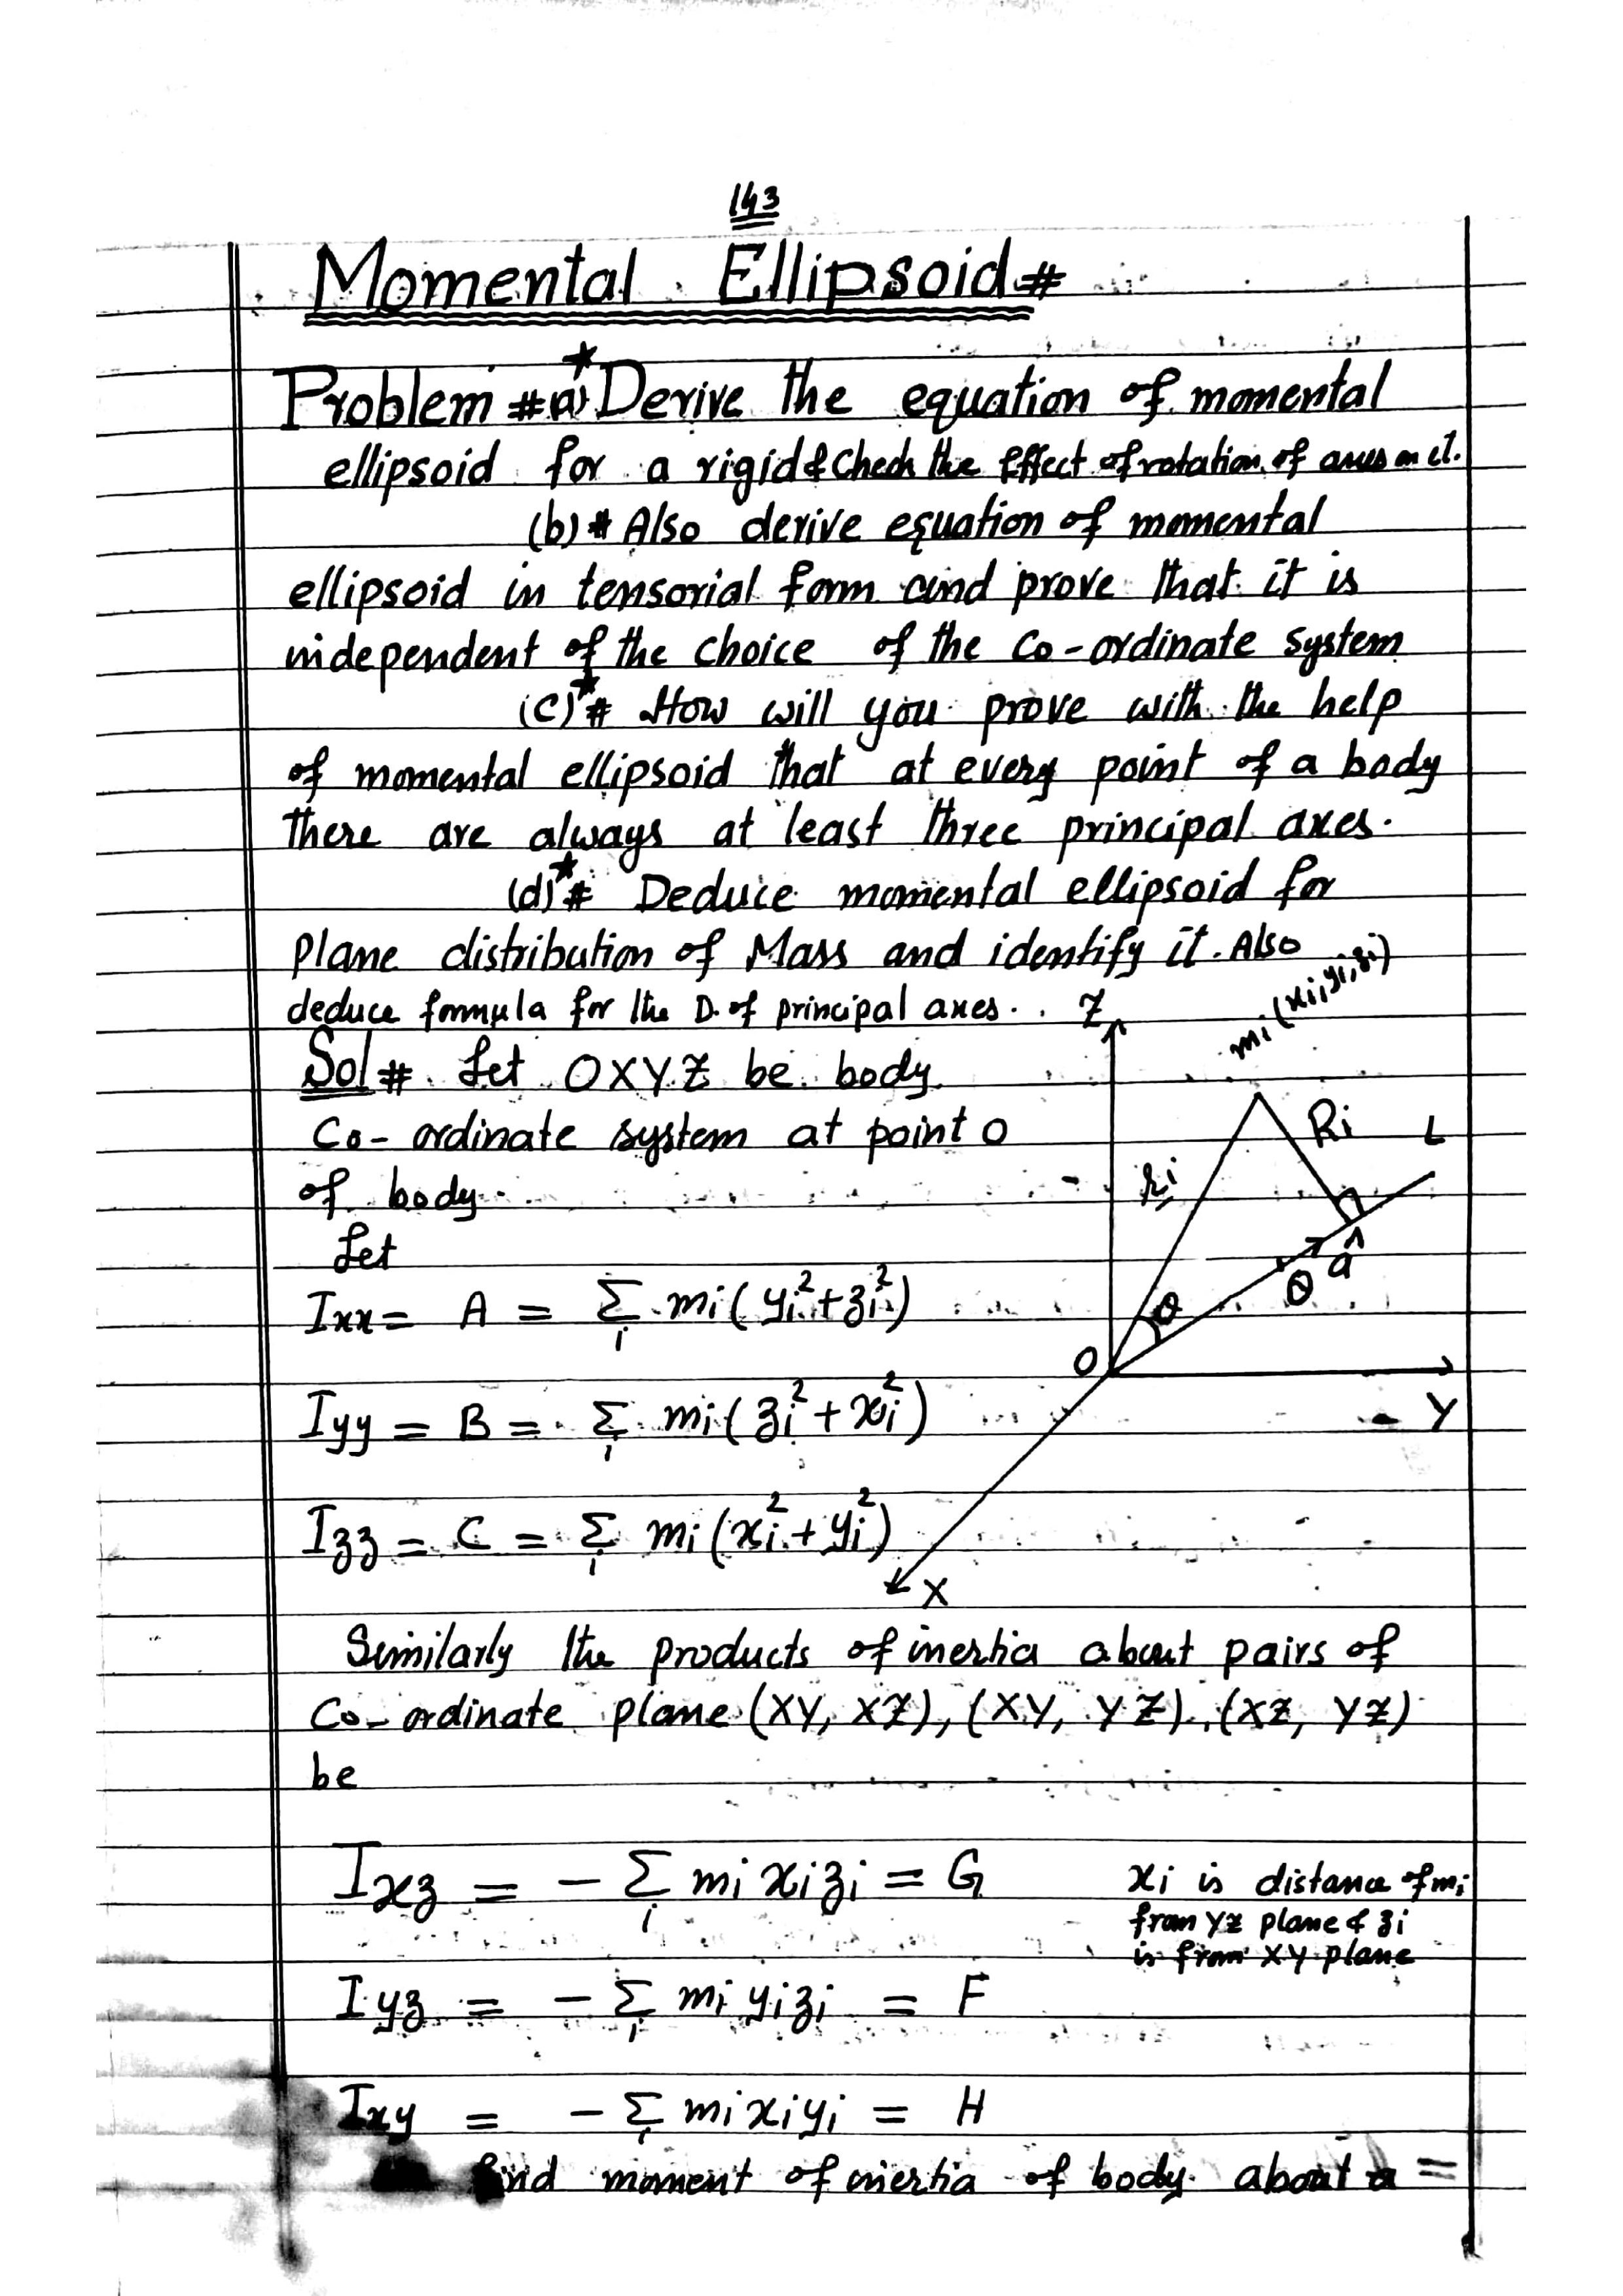 143
Momental Ellipsoid #
Problem #(a)* Derive the equation of momental
ellipsoid for a rigid & Check the Effect of rotation of axes on it.
(b) # Also derive equation of momental
ellipsoid in tensorial form and prove that it is
independent of the choice of the Co-ordinate system
(c)*# How will you prove with the help
of momental ellipsoid that at every point of a body
There are always at least three principal axes.
(d)*# Deduce momental ellipsoid for
plane distribution of Mass and identify it. Also
deduce formula for the D. of principal axes.
Z
mi (xi, yi, zi)
Sol # Let OXYZ be body
Co-ordinate system at point O
of body.
Ri
L
ri
Let
â
θ
θ
Ixx = A = Σi mi (yi² + zi²)
O
Y
Iyy = B = Σi mi (zi² + xi²)
Izz = C = Σi mi (xi² + yi²)
X
Similarly the products of inertia about pairs of
Co-ordinate plane (XY, XZ), (XY, YZ), (XZ, YZ)
be
Ixz = - Σi mi xi zi = G
xi is distance of mi
from YZ plane & zi
is from XY plane
Iyz = - Σi mi yi zi = F
Ixy = - Σi mi xi yi = H
find moment of inertia of body about a =